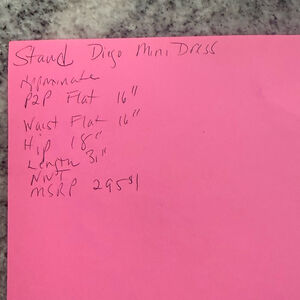 Stand Diego Mini Dress
Approximate
P2P Flat 16"
Waist Flat 16"
Hip 18"
Length 31"
NWT
MSRP 295$